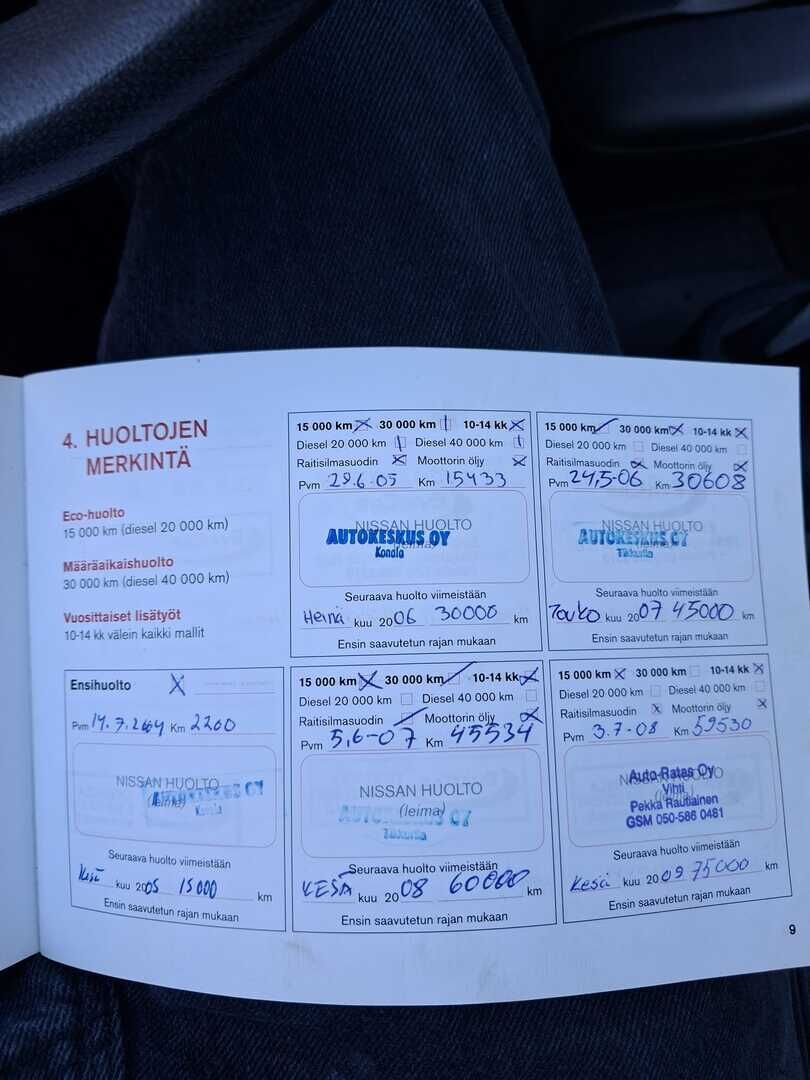 4. HUOLTOJEN
MERKINTÄ
Eco-huolto
15 000 km (diesel 20 000 km)
Määräaikaishuolto
30 000 km (diesel 40 000 km)
Vuosittaiset lisätyöt
10-14 kk välein kaikki mallit
15 000 km 30 000 km 10-14 kk
Diesel 20 000 km Diesel 40 000 km
Raitisilmasuodin Moottorin öljy
Pvm 29.6.05 Km 15433
NISSAN HUOLTO
(leima)
AUTOKESKUS OY
Konala
Seuraava huolto viimeistään
Heinä kuu 2006 30000 km
Ensin saavutetun rajan mukaan
15 000 km 30 000 km 10-14 kk
Diesel 20 000 km Diesel 40 000 km
Raitisilmasuodin Moottorin öljy
Pvm 24,5-06 Km 30608
NISSAN HUOLTO
(leima)
AUTOKESKUS OY
Tikkurila
Seuraava huolto viimeistään
Touko kuu 2007 45000 km
Ensin saavutetun rajan mukaan
Ensihuolto
Pvm 14.7.2004 Km 2200
NISSAN HUOLTO
(leima)
AUTOKESKUS OY
Konala
Seuraava huolto viimeistään
Kesä kuu 2005 15000 km
Ensin saavutetun rajan mukaan
15 000 km 30 000 km 10-14 kk
Diesel 20 000 km Diesel 40 000 km
Raitisilmasuodin Moottorin öljy
Pvm 5,6-07 Km 45534
NISSAN HUOLTO
(leima)
AUTOKESKUS OY
Tikkurila
Seuraava huolto viimeistään
KESÄ kuu 2008 60000 km
Ensin saavutetun rajan mukaan
15 000 km 30 000 km 10-14 kk
Diesel 20 000 km Diesel 40 000 km
Raitisilmasuodin Moottorin öljy
Pvm 3.7-08 Km 59530
NISSAN HUOLTO
(leima)
Auto-Ratas Oy
Vihti
Pekka Rautiainen
GSM 050-586 0481
Seuraava huolto viimeistään
Kesä kuu 2009 75000 km
Ensin saavutetun rajan mukaan
9